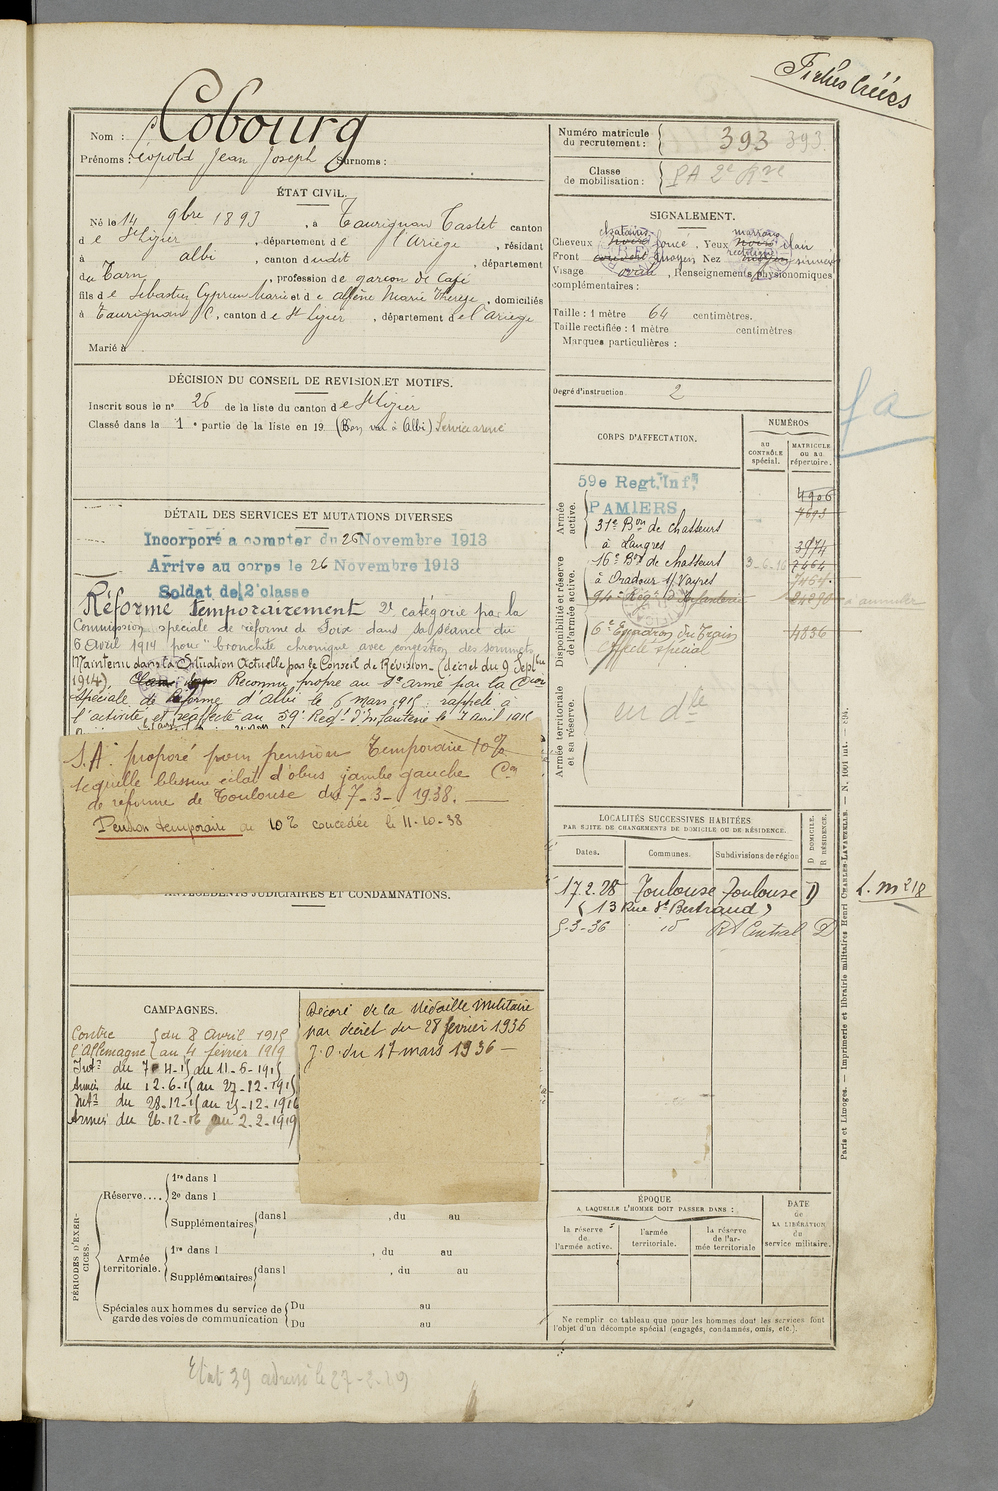 Fiches créées
Nom : Cobourg
Prénoms : Léopold Jean Joseph Surnoms :
ÉTAT CIVIL.
Né le 14 9bre 1893, à Taurignan Castet canton
de St Lizier, département de l'Ariège, résidant
à albi, canton dudit, département
du Tarn, profession de garçon de Café
fils de Sébastien Cyprien Marie et de Marie Thérèse, domiciliés
à Taurignan C, canton de St Lizier, département de l'Ariège
Marié à
DÉCISION DU CONSEIL DE REVISION ET MOTIFS.
Inscrit sous le n° 26 de la liste du canton de St Lizier
Classé dans la 1e partie de la liste en 19 (Bon vu à Albi) Service armé
DÉTAIL DES SERVICES ET MUTATIONS DIVERSES
Incorporé a compter du 26 Novembre 1913
Arrive au corps le 26 Novembre 1913
Soldat de 2e classe
Réformé Temporairement 2e catégorie par la
Commission spéciale de réforme de Foix dans sa séance du
6 avril 1914 pour "bronchite chronique avec congestion des sommets
Maintenu dans la Situation Actuelle par le Conseil de Révision (décret du 9 Septbre
1914). Reconnu propre au Sce armé par la Cion
spéciale de Réforme d'albi le 6 mars 1915 rappelé à
l'activité et réaffecté au 59e Regt d'Infanterie le 7 avril 1915
S.A. proposé pour pension Temporaire 10%
séquelle blessure éclat d'obus jambe gauche Con
de réforme de Toulouse du 7-3-1938.
Pension temporaire de 10% concédée le 11-10-38
ANTÉCÉDENTS JUDICIAIRES ET CONDAMNATIONS.
CAMPAGNES.
Contre du 8 Avril 1915
l'Allemagne au 4 février 1919
Intr du 7-4-15 au 11-6-1915
Armées du 12-6-15 au 27-12-1915
Intr du 28-12-15 au 25-12-1916
Armées du 26-12-16 au 2-2-1919
Décoré de la Médaille Militaire
par décret du 28 février 1936
J.O. du 17 mars 1936
PÉRIODES D'EXERCICES.
Réserve....
1re dans l
2e dans l
Supplémentaires dans l , du au
Armée territoriale.
1re dans l , du au
Supplémentaires dans l , du au
Spéciales aux hommes du service de garde des voies de communication
Du au
Du au
Etat 39 adressé le 27-2-19
Numéro matricule du recrutement : 393 393.
Classe de mobilisation : PA 2e Rve
SIGNALEMENT.
châtains marrons
Cheveux noirs foncé, Yeux noirs clair
rectiligne
Front couvert moyen Nez moyen
Visage ovale, Renseignements physionomiques
complémentaires :
Taille : 1 mètre 64 centimètres.
Taille rectifiée : 1 mètre centimètres
Marques particulières :
Degré d'instruction 2
CORPS D'AFFECTATION.
NUMÉROS
au CONTRÔLE spécial.
MATRICULE ou au répertoire.
Armée active.
59e Regt. Inf.
PAMIERS
4906
31e Bon de chasseurs
à Langres
3974
Disponibilité et réserve de l'armée active.
16e Bon de chasseurs
à Oradour s/ Vayres
94e Regt d'Infanterie à annuler
6e Escadron du Train 4836
Affecté spécial
Armée territoriale et sa réserve.
en dte
fa
LOCALITÉS SUCCESSIVES HABITÉES
PAR SUITE DE CHANGEMENTS DE DOMICILE OU DE RÉSIDENCE.
Dates. Communes. Subdivisions de région D DOMICILE. R RÉSIDENCE.
17.2.28 Toulouse Toulouse D
(13 Rue St Bertrand)
5-3-36 id Rt Central D
L. m 218
ÉPOQUE
A LAQUELLE L'HOMME DOIT PASSER DANS :
la réserve de l'armée active.
l'armée territoriale.
la réserve de l'armée territoriale
DATE de LA LIBÉRATION du service militaire.
Ne remplir ce tableau que pour les hommes dont les services font
l'objet d'un décompte spécial (engagés, condamnés, omis, etc.).
Paris et Limoges. — Imprimerie et librairie militaires Henri CHARLES-LAVAUZELLE. — N. 1001 int. — 894.